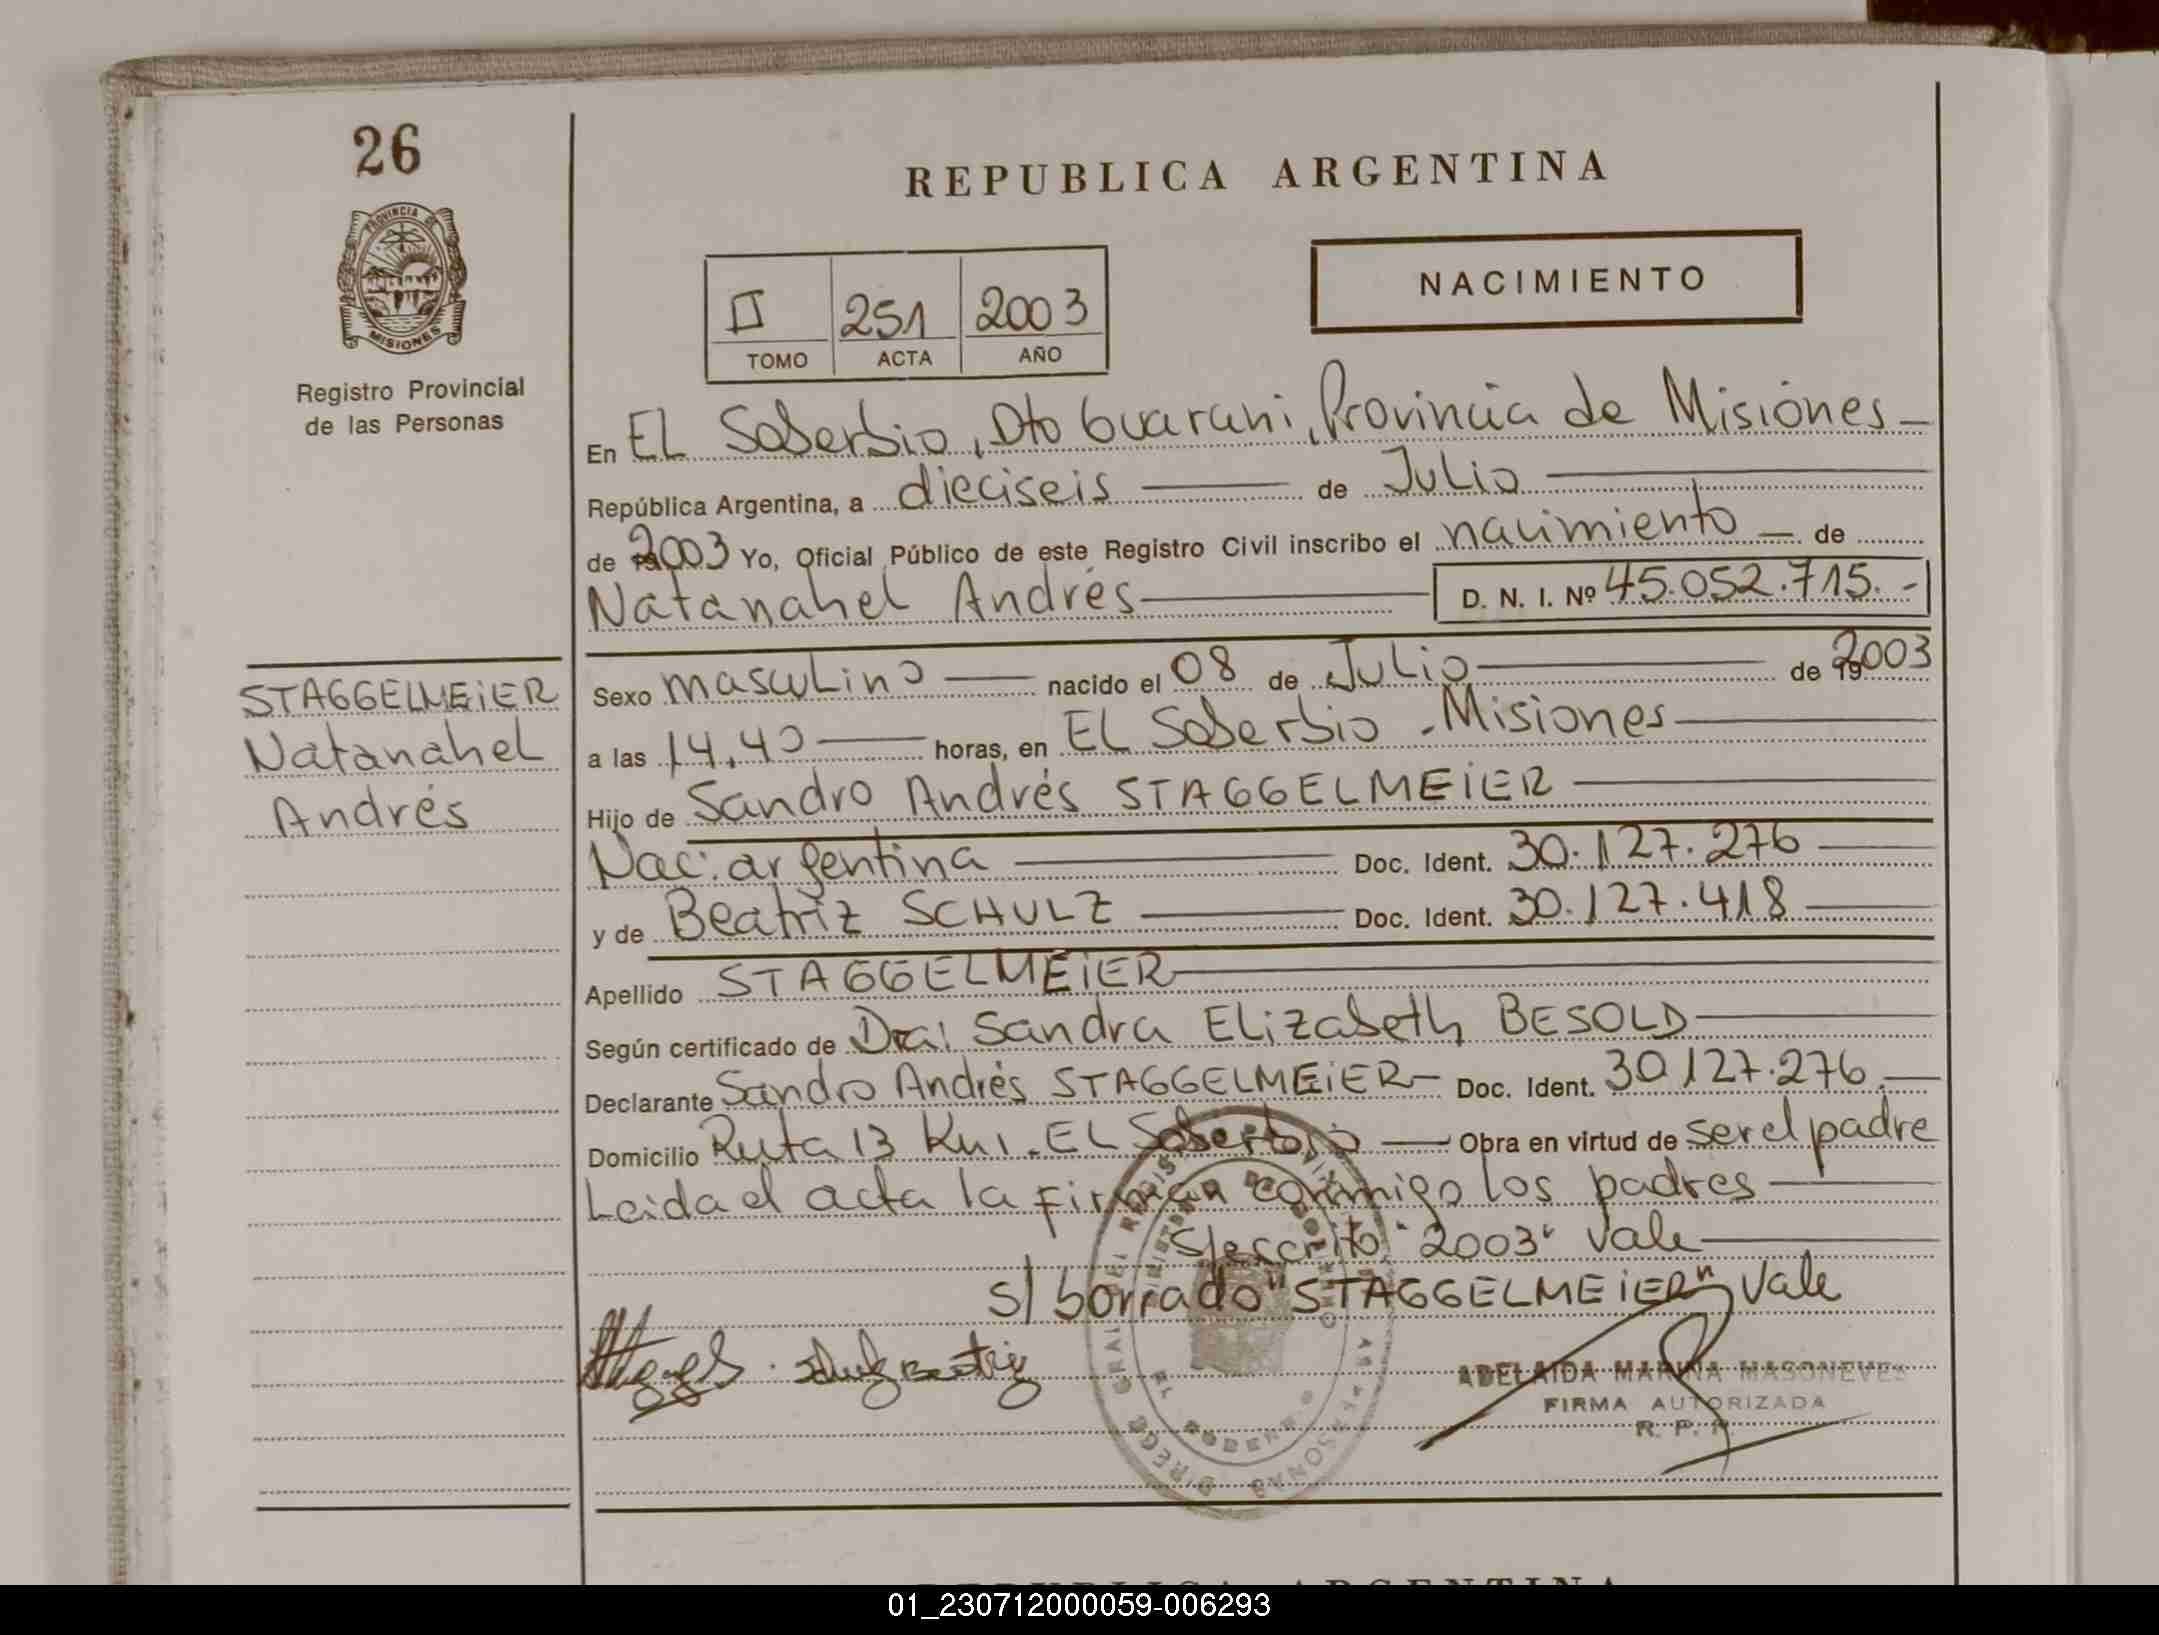 26
REPUBLICA ARGENTINA
PROVINCIA DE
MISIONES
NACIMIENTO
II 251 2003
TOMO ACTA AÑO
Registro Provincial
de las Personas
En EL Soberbio, Dto Guarani, Provincia de Misiones
República Argentina, a dieciseis de Julio
de 2003 Yo, Oficial Público de este Registro Civil inscribo el nacimiento de
Natanahel Andrés D. N. I. Nº 45.052.715.-
STAGGELMEiER
Natanahel
Andrés
Sexo masculino nacido el 08 de Julio de 2003
a las 14,40 horas, en EL Soberbio - Misiones
Hijo de Sandro Andrés STAGGELMEiER
Nac: argentina Doc. Ident. 30.127.276
y de Beatriz SCHULZ Doc. Ident. 30.127.418
Apellido STAGGELMEiER
Según certificado de Dra: Sandra Elizabeth BESOLD
Declarante Sandro Andrés STAGGELMEiER Doc. Ident. 30127.276
Domicilio Ruta 13 Km 1. EL Soberbio Obra en virtud de ser el padre
Leida el acta la firman conmigo los padres
S/escrito "2003" Vale
s/ borrado "STAGGELMEiER" Vale
Schulz Beatriz
ADELAIDA MARINA MASONEVES
FIRMA AUTORIZADA
R. P. P.
REPUBLICA ARGENTINA
01_230712000059-006293